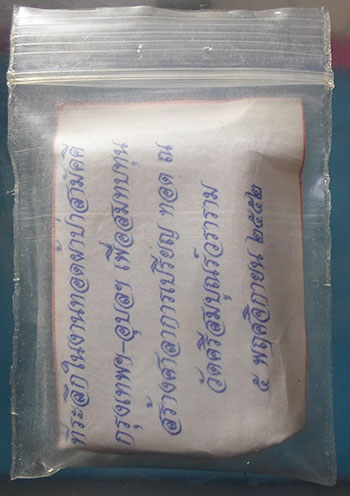 ที่ระลึกในงานทอดผ้าป่าสามัคคี
กรุงเทพฯ-อุบลฯ เพื่อสมทบทุน
สร้างศาลาการเปรียญ ทอด ณ
วัดศรีสมบุญรัวราราม
๕ พฤศจิกายน ๒๕๕๒